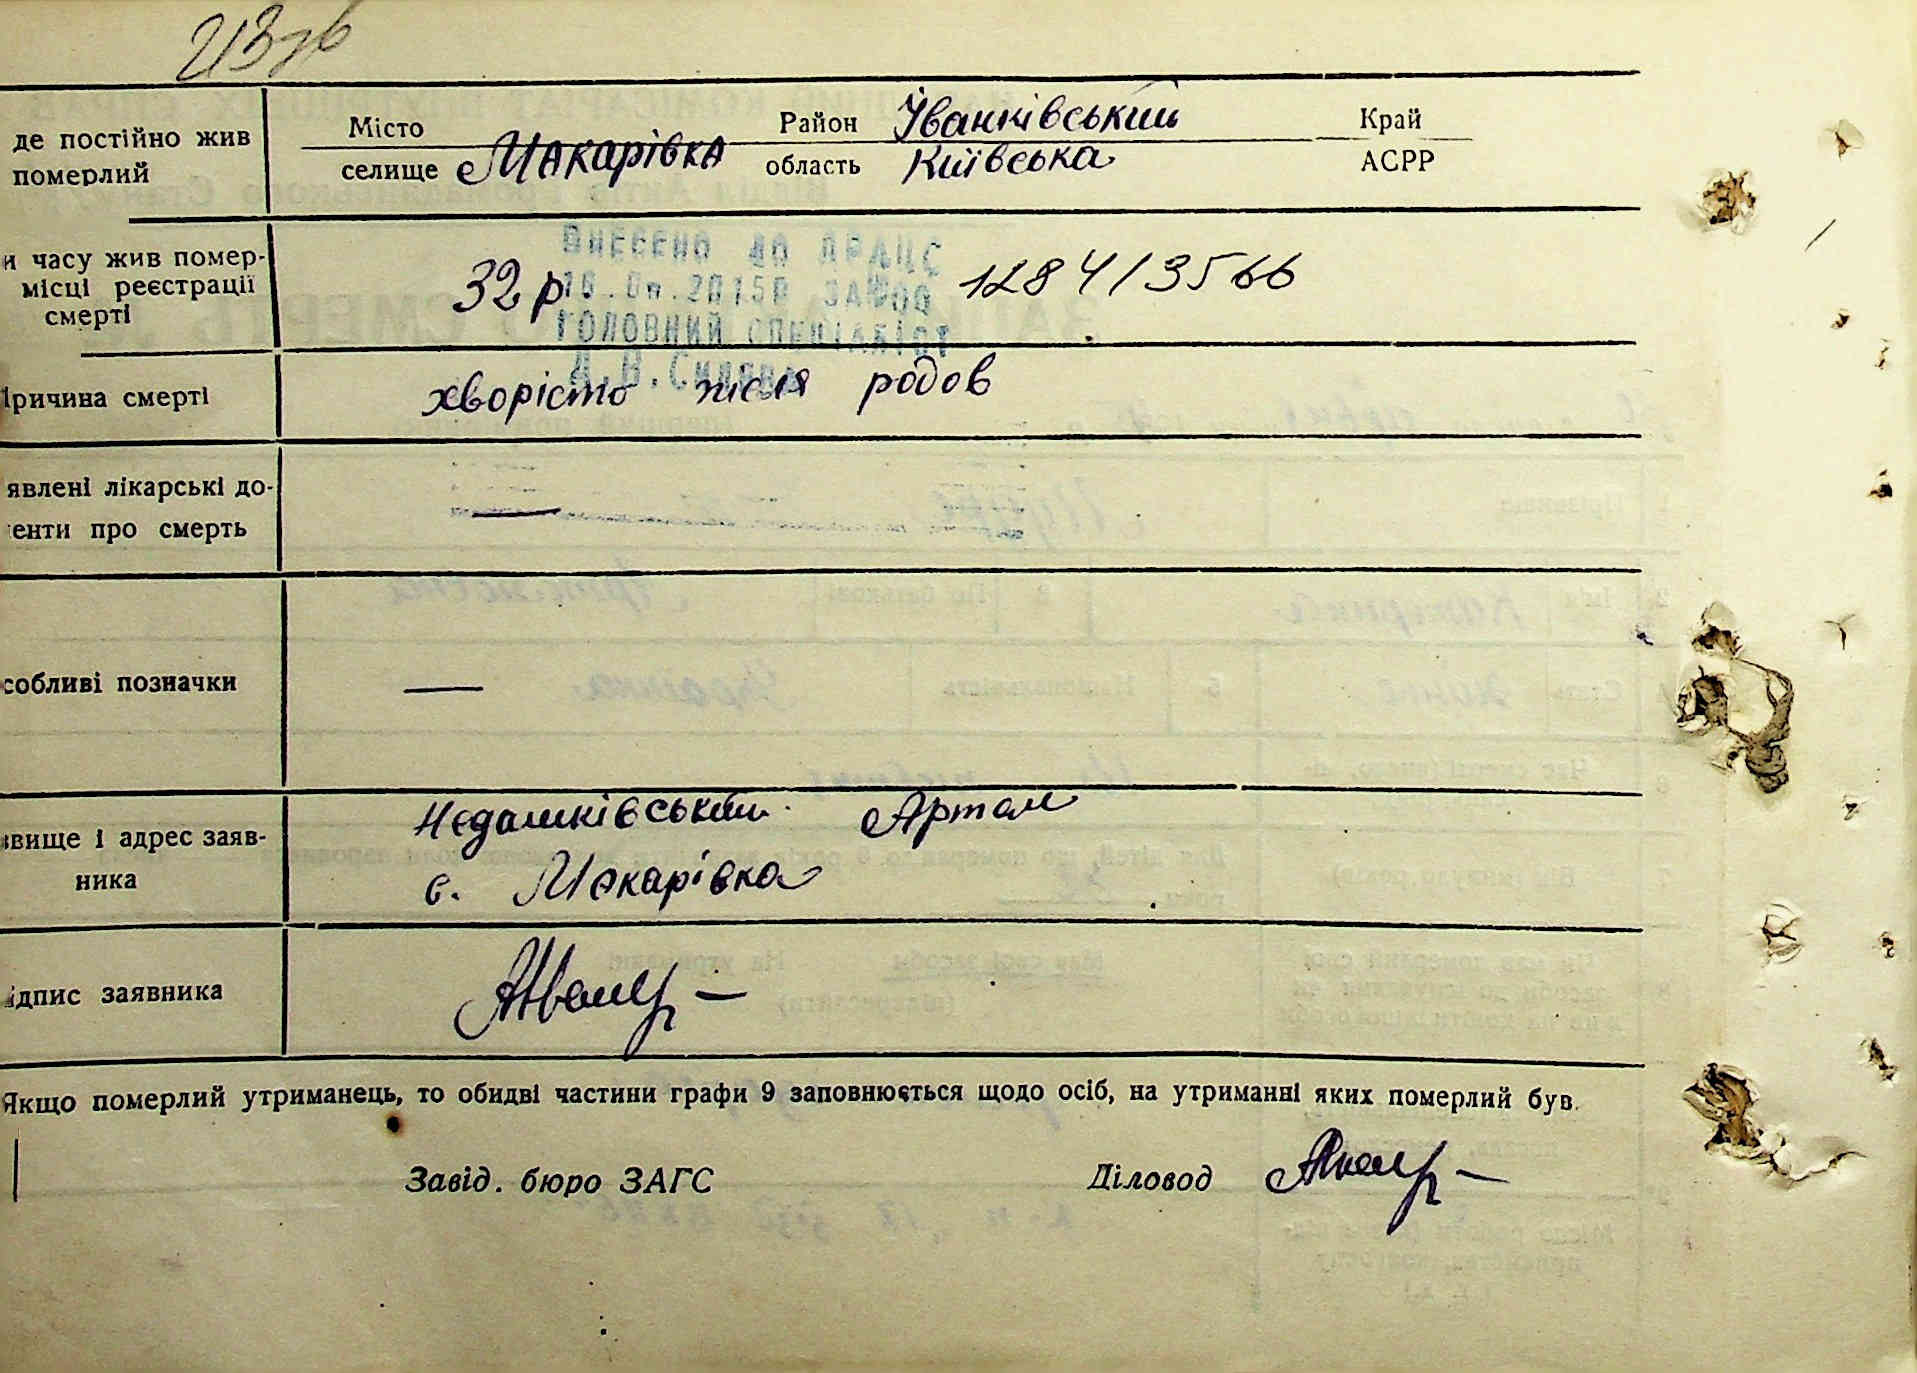 де постійно жив
померлий
Місто
селище Макарівка
Район Іванківський
область Київська
Край
АСРР
и часу жив помер-
місці реєстрації
смерті
32 р
1284/3566
ВНЕСЕНО ДО ДРАЦС
ГОЛОВНИЙ СПЕЦІАЛІСТ
Причина смерті
хворість після родов
явлені лікарські до-
енти про смерть
—
собливі позначки
—
звище і адрес заяв-
ника
Недашківський Артем
с. Макарівка
ідпис заявника
Якщо померлий утриманець, то обидві частини графи 9 заповнюється щодо осіб, на утриманні яких померлий був.
Завід. бюро ЗАГС
Діловод